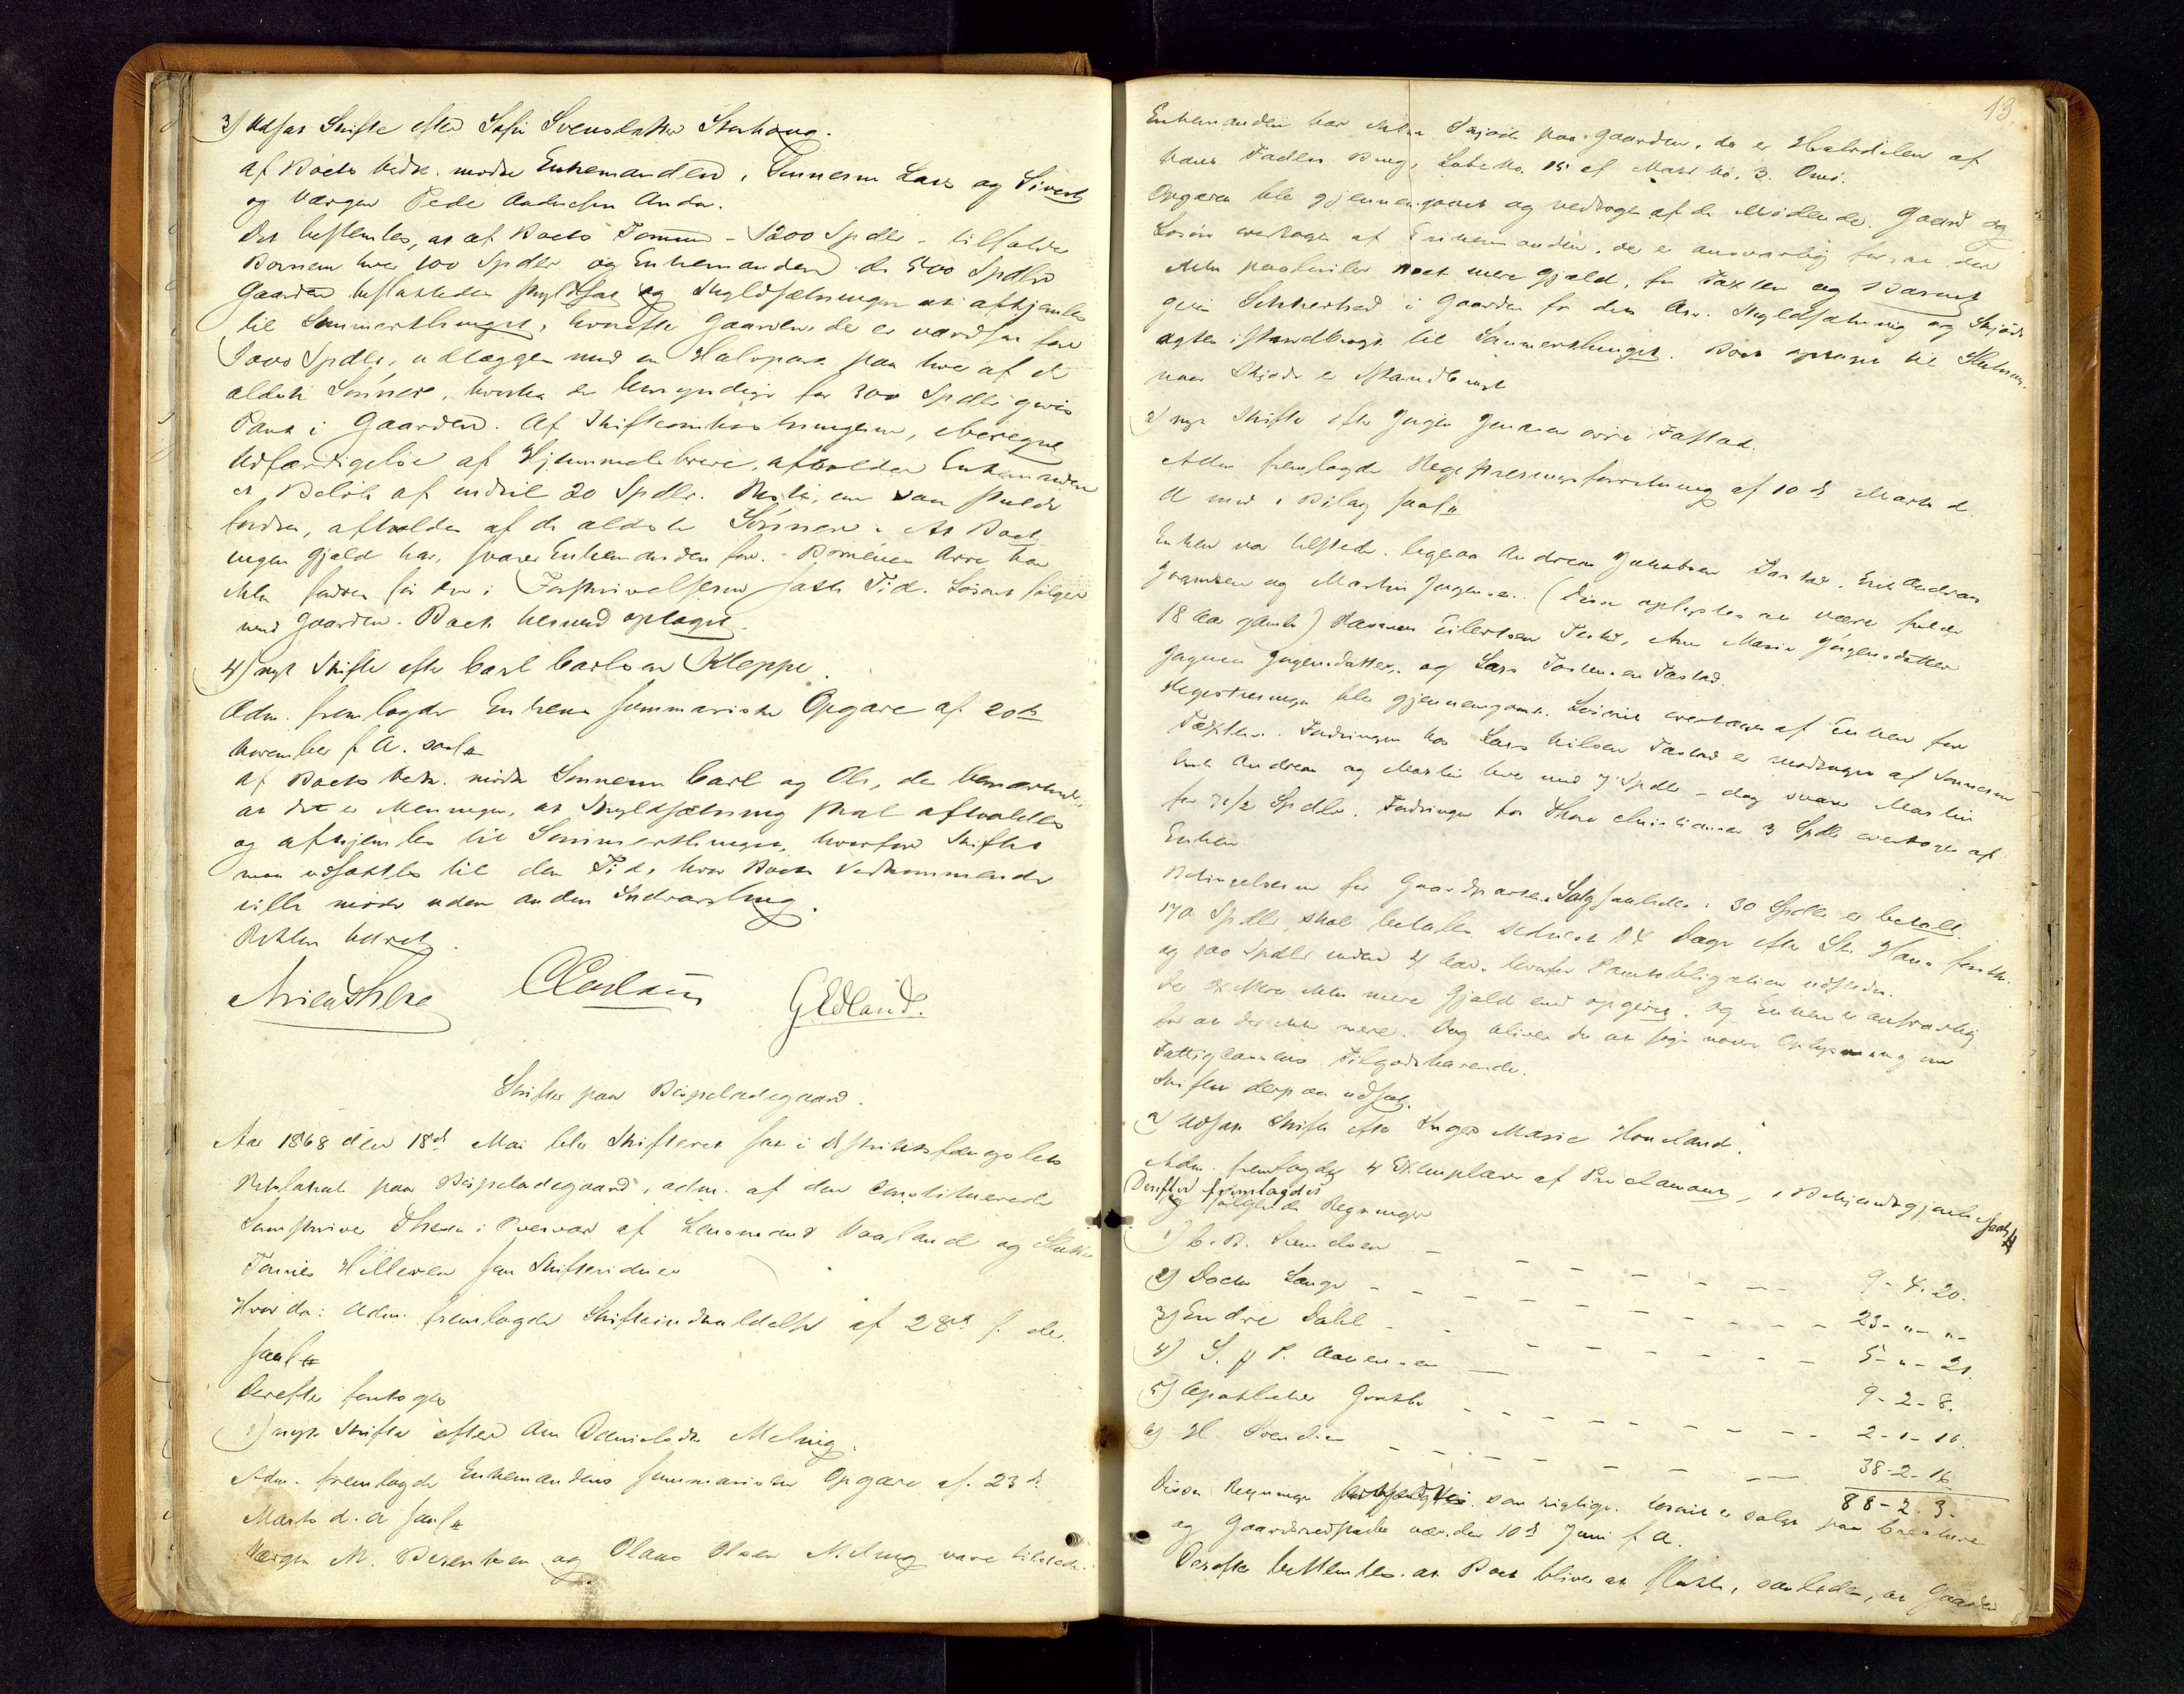 3) Udsat Skifte efter Sofie Svensdatter Storhoug.
af Boets Vedk. mødte Enkemanden, Sønnerne Lars og Sivert
og Værgen Peder Andersen Anda.
Det bestemtes, at af Boets Formue - 1200 Spdlr - tilfalder
Børnene hver 100 Spdlr og Enkemanden de 500 Spdlr
Gaarden besluttedes skyldsat og Skyldsætningen at afhjemles
til Sommerthinget, hvorefter Gaarden, der er værdsat for
1000 Spdlr, udlægges med en Halvpart paa hver af de
ældste Sønner, hvorhos de Umyndige for 300 Spdlr gives
Pant i Gaarden. Af Skifteomkostningerne, iberegnet
Udfærdigelse af Hjemmelsbreve, afholder Enkemanden
et Beløb af indtil 20 Spdlr. Resten, om saa skulde
fordres, afholdes af de ældste Sønner. At Boet
ingen Gjæld har, svarer Enkemanden for. Børnenes Arv kan
ikke fordres før den i Forskrivelserne satte Tid. Løsøret følger
med Gaarden. Boet hermed optaget.
4) nyt Skifte efter Carl Carlsen Kleppe.
Adm. fremlagde Enkens summariske Opgave af 20de
November f. A. saal.
af Boets Vedk. mødte Sønnerne Carl og Ole, der bemærkede
at det er Meningen, at Skyldsætning skal afholdes
og afhjemles til Sommerthinget, hvorfor Skiftet
maa udsættes til den Tid, hvor Boets Vedkommende
ville møde uden anden Indvarsling.
Retten hævet.
GEdland.
Skifter paa Bispeladegaard.
Aar 1868 den 18de Mai blev Skifteret sat i Distriktsfængslets
Retslokale paa Bispeladegaard, adm. af den constituerede
Sorenskriver i Overvær af Lensmand Vaaland og
Tønnes Hilleren som Skiftevidner
Hvorda: Adm. fremlagde Skifteindkaldelse af 28de f. M.
saal.
Derefter foretoges
1) nyt Skifte efter Ane Danielsdtr Melnig.
Adm. fremlagde Enkemandens summariske Opgave af 23de
Marts d. A. saal.
Værgen M. Berentsen og Olaus Olsen Melnig vare tilstede.
13.
Enkemanden har ikke Skjøde paa Gaarden, der er Halvdelen af
No. 15 af Matr. No. 3.
Opgaven blev gjennemgaaet og vedtagen af de Mødende. Gaard og
Løsøre overtages af Enkemanden, der er ansvarlig for, at der
ikke paahviler Boet mere Gjæld, for Taxten og Børnene
gives Sikkerhed i Gaarden for den Arv. Skyldsætning og Skjøde
agtes istandbragt til Sommerthinget. Boet optages til Slutning,
naar Skjøde er istandbragt
2) nyt Skifte efter Jørgen Jensen øvre Tastad.
Adm. fremlagde Registreringsforretning af 10de Marts d.
A. med 1 Bilag saal.
Enken var tilstede, ligesaa Andreas Jakobsen Tastad, Erik Andreas
Jørgensen og Martin Jørgensen (Disse oplystes at være fulde
18 Aar gamle) Rasmus Eilertsen Tastad, Ane Marie Jørgensdatter
Jørgensdatter, og Lars Torkelsen Tastad.
Registreringen blev gjennemgaaet. Løsøret overtages af Enken for
Taxten. Fordringen hos Lars Nilsen Tastad er modtagen af Sønnerne
Erik Andreas og Martin hver med 7 Spdlr - dog svarer Martin
for 7 1/2 Spdlr. Fordringen hos Christiansen 3 Spdlr overtages af
Enken.
Betingelserne for Gaardpartens Salg saaledes: 30 Spdlr er betalt.
170 Spdlr skal betales sidnest 14 Dage efter St. Hans førstk.
og 100 Spdlr inden 4 Aar, hvorfor Pantobligation udstedes.
Der er ikke mere Gjæld end opgivet, og Enken er ansvarlig
for at der ikke er mere. Dog bliver der at søge nærmere Oplysning om
Fattigkassens Tilgodehavende.
Skiftet derpaa udsat.
3) Udsat Skifte efter Inger Marie Haaland.
Adm. fremlagde 4 Exemplarer af Proclamaet, 1 Bekjendtgjørelse saal.
Derefter fremlagdes
og følgende Regninger
1) C. B. Svendsen - 9-4-20.
2) Doctor Lange - 23-"-"-
3) Endre Dahl - 5-"-21.
4) S. & P. Aanensen - 9-2-8.
5) Apotheker - 2-1-10.
6) H. Svendsen - 38-2-16
88-2-3.
Disse Regninger som rigtige. Løsøret er solgt paa Creature
og Gaardsredskaber nær, den 10de Juni f. A.
Derefter bestemtes, at Boet bliver at slutte, saaledes, at Gaarden